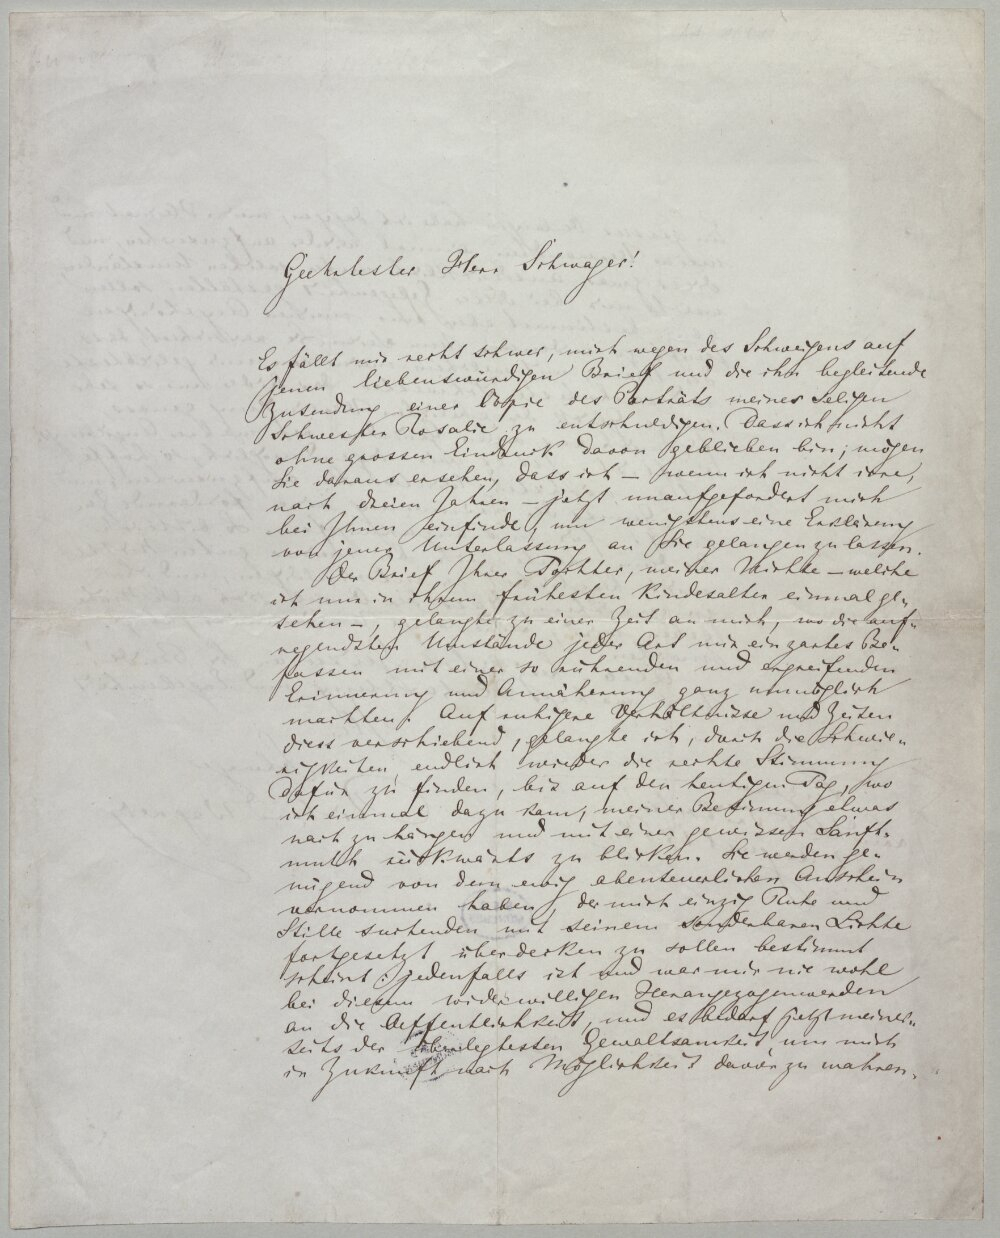 Geehrtester Herr Schwager!
Es fällt mir recht schwer, mich wegen des Schweigens auf
jenen liebenswürdigen Brief und die ihn begleitende
Zusendung einer Copie des Porträts meiner seligen
Schwester Rosalie zu entschuldigen. Dass ich nicht
ohne grossen Eindruck davon geblieben bin, mögen
Sie daraus ersehen, dass ich – wenn ich nicht irre,
nach dreien Jahren – jetzt unaufgefordert mich
bei Ihnen einfinde, um wenigstens eine Erklärung
von jener Unterlassung an Sie gelangen zu lassen.
Der Brief Ihrer Tochter, meiner Nichte – welche
ich nur in ihrem frühesten Kindesalter einmal ge-
sehen –, gelangte zu einer Zeit an mich, wo die auf-
regendsten Umstände jeder Art mir ein zartes Be-
fassen mit einer so rührenden und ergreifenden
Erinnerung und Annäherung ganz unmöglich
machten. Auf ruhigere Verhältnisse und Zeiten
diess verschiebend, gelangte ich, durch die Schwie-
rigkeiten endlich wieder die rechte Stimmung
dafür zu finden, bis auf den heutigen Tag, wo
ich einmal dazu kam, meiner Besinnung etwas
nach zu hängen und mit einer gewissen Sanft-
muth rückwärts zu blicken. Sie werden ge-
nügend von dem ewig abenteuerlichen Anschein
vernommen haben, der mich einzig Ruhe und
Stille suchenden mit seinem sonderbaren Lichte
fortgesetzt überdecken zu sollen bestimmt
scheint: jedenfalls ist und war mir nie wohl
bei diesem widerwilligen Herangezogenwerden
an die Oeffentlichkeit, und es bedarf jetzt meiner-
seits der überlegtesten Gewaltsamkeit um mich
in Zukunft nach Möglichkeit davor zu wahren.